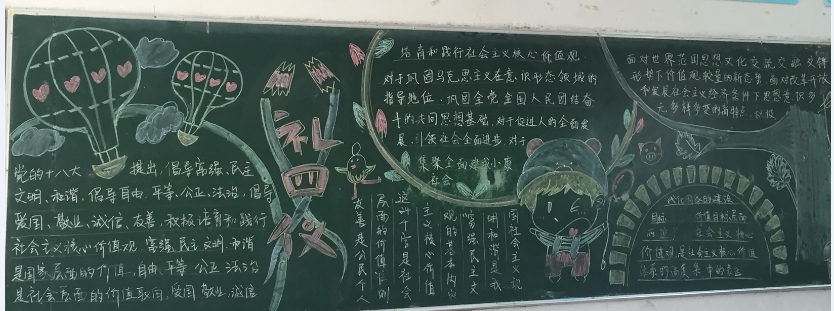 党的十八大 提出,倡导富强、民主
文明、和谐,倡导自由、平等、公正、法治,倡导
爱国、敬业、诚信、友善,积极培育和践行
社会主义核心价值观 富强 民主 文明 和谐
是国家层面的价值 自由 平等 公正 法治
是社会层面的价值取向,爱国 敬业 诚信
友善是公民个人
层面的价值准则
这24个字是社会
主义核心价值
观的基本内
富强民主文
明和谐是我
国社会主义现
培育和践行社会主义核心价值观
对于巩固马克思主义在意识形态领域的
指导地位、巩固全党全国人民团结奋
斗的共同思想基础,对于促进人的全面发
展、引领社会全面进步,对于
集聚全面建成小康
社会
面对世界范围思想文化交流交融交锋
形势下价值观较量的新态势 面对改革开放
和发展社会主义 经济条件下思想意识多
元多样多变的新特点
价值目标层面
社会主义核心
价值观是社会主义核心价值